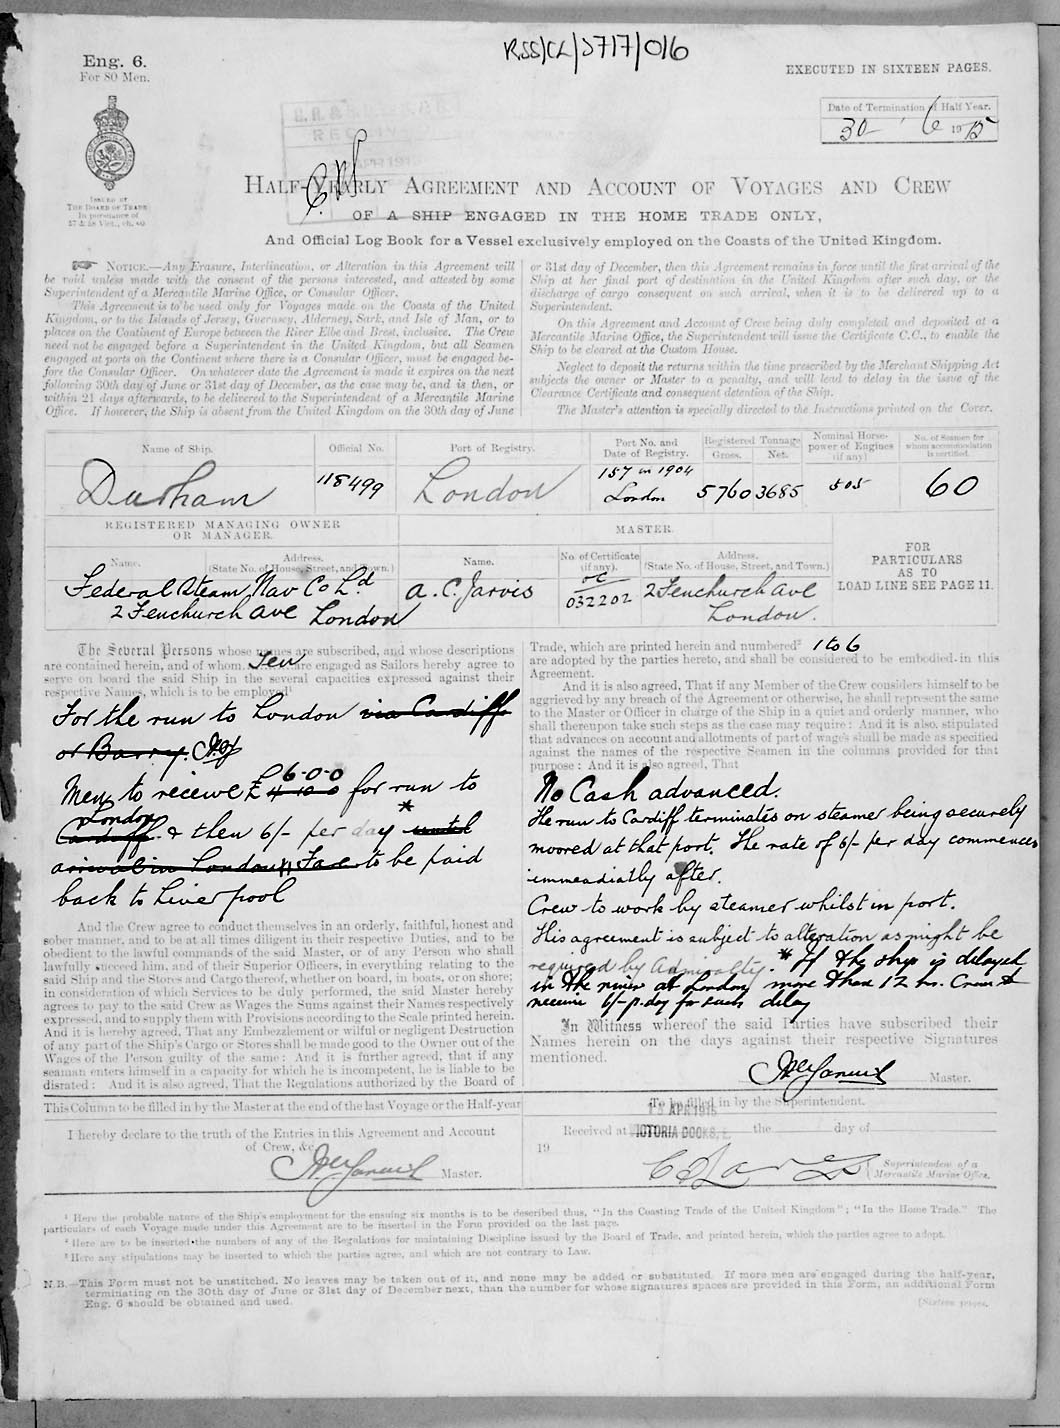 RSS/CL/3717/016
Eng. 6.
For 80 Men.
EXECUTED IN SIXTEEN PAGES.
Date of Termination of Half Year.
30 6 1915
ISSUED BY
THE BOARD OF TRADE
In pursuance of
57 & 58 Vict., ch. 60
HALF-YEARLY AGREEMENT AND ACCOUNT OF VOYAGES AND CREW
OF A SHIP ENGAGED IN THE HOME TRADE ONLY,
And Official Log Book for a Vessel exclusively employed on the Coasts of the United Kingdom.
NOTICE.—Any Erasure, Interlineation, or Alteration in this Agreement will
be void unless made with the consent of the persons interested, and attested by some
Superintendent of a Mercantile Marine Office, or Consular Officer.
This Agreement is to be used only for Voyages made on the Coasts of the United
Kingdom, or to the Islands of Jersey, Guernsey, Alderney, Sark, and Isle of Man, or to
places on the Continent of Europe between the River Elbe and Brest, inclusive. The Crew
need not be engaged before a Superintendent in the United Kingdom, but all Seamen
engaged at ports on the Continent where there is a Consular Officer, must be engaged be-
fore the Consular Officer. On whatever date the Agreement is made it expires on the next
following 30th day of June or 31st day of December, as the case may be, and is then, or
within 21 days afterwards, to be delivered to the Superintendent of a Mercantile Marine
Office. If however, the Ship is absent from the United Kingdom on the 30th day of June
or 31st day of December, then this Agreement remains in force until the first arrival of the
Ship at her final port of destination in the United Kingdom after such day, or the
discharge of cargo consequent on such arrival, when it is to be delivered up to a
Superintendent.
On this Agreement and Account of Crew being duly completed and deposited at a
Mercantile Marine Office, the Superintendent will issue the Certificate C.C., to enable the
Ship to be cleared at the Custom House.
Neglect to deposit the returns within the time prescribed by the Merchant Shipping Act
subjects the owner or Master to a penalty, and will lead to delay in the issue of the
Clearance Certificate and consequent detention of the Ship.
The Master's attention is specially directed to the Instructions printed on the Cover.
Name of Ship. Official No. Port of Registry. Port No. and Date of Registry. Registered Tonnage Gross. Net. Nominal Horse-power of Engines (if any) No. of Seamen for whom accommodation is certified.
Durham 118499 London 157 in 1904 London 5760 3685 505 60
REGISTERED MANAGING OWNER
OR MANAGER.
MASTER.
Name. Address. (State No. of House, Street, and Town.) Name. No. of Certificate (if any). Address. (State No. of House, Street, and Town.)
FOR
PARTICULARS
AS TO
LOAD LINE SEE PAGE 11.
Federal Steam Nav Co Ld A. C. Jarvis OC 032202 2 Fenchurch Ave
2 Fenchurch Ave London London.
The Several Persons whose names are subscribed, and whose descriptions
are contained herein, and of whom Ten are engaged as Sailors hereby agree to
serve on board the said Ship in the several capacities expressed against their
respective Names, which is to be employed¹
For the run to London via Cardiff
or Barry.
Men to receive £ 6-0-0 4-10-0 for run to
London Cardiff & then 6/- per day * until
arrival in London Fare to be paid
back to Liverpool
And the Crew agree to conduct themselves in an orderly, faithful, honest and
sober manner, and to be at all times diligent in their respective Duties, and to be
obedient to the lawful commands of the said Master, or of any Person who shall
lawfully succeed him, and of their Superior Officers, in everything relating to the
said Ship and the Stores and Cargo thereof, whether on board, in boats, or on shore:
in consideration of which Services to be duly performed, the said Master hereby
agrees to pay to the said Crew as Wages the Sums against their Names respectively
expressed, and to supply them with Provisions according to the Scale printed herein.
And it is hereby agreed, That any Embezzlement or wilful or negligent Destruction
of any part of the Ship's Cargo or Stores shall be made good to the Owner out of the
Wages of the Person guilty of the same: And it is further agreed, that if any
seaman enters himself in a capacity for which he is incompetent, he is liable to be
disrated: And it is also agreed, That the Regulations authorized by the Board of
Trade, which are printed herein and numbered² 1 to 6
are adopted by the parties hereto, and shall be considered to be embodied in this
Agreement.
And it is also agreed, That if any Member of the Crew considers himself to be
aggrieved by any breach of the Agreement or otherwise, he shall represent the same
to the Master or Officer in charge of the Ship in a quiet and orderly manner, who
shall thereupon take such steps as the case may require: And it is also stipulated
that advances on account and allotments of part of wages shall be made as specified
against the names of the respective Seamen in the columns provided for that
purpose: And it is also agreed, That
No Cash advanced.
The run to Cardiff terminates on steamer being securely
moored at that port. The rate of 6/- per day commences
immeadiatly after.
Crew to work by steamer whilst in port.
This agreement is subject to alteration as might be
required by Admiralty. * If the ship is delayed
in the river at London more than 12 hrs. Crew to
receive 6/- p. day for such delay
In Witness whereof the said Parties have subscribed their
Names herein on the days against their respective Signatures
mentioned.
Master.
This Column to be filled in by the Master at the end of the last Voyage or the Half-year
I hereby declare to the truth of the Entries in this Agreement and Account
of Crew, &c.
Master.
To be filled in by the Superintendent.
APR 1915
Received at VICTORIA DOCKS, E. the day of
19
Superintendent of a
Mercantile Marine Office.
¹ Here the probable nature of the Ship's employment for the ensuing six months is to be described thus, "In the Coasting Trade of the United Kingdom"; "In the Home Trade." The
particulars of each Voyage made under this Agreement are to be inserted in the Form provided on the last page.
² Here are to be inserted the numbers of any of the Regulations for maintaining Discipline issued by the Board of Trade, and printed herein, which the parties agree to adopt.
³ Here any stipulations may be inserted to which the parties agree, and which are not contrary to Law.
N.B.—This Form must not be unstitched. No leaves may be taken out of it, and none may be added or substituted. If more men are engaged during the half-year,
terminating on the 30th day of June or 31st day of December next, than the number for whose signatures spaces are provided in this Form, an additional Form
Eng. 6 should be obtained and used.
[Sixteen pages.